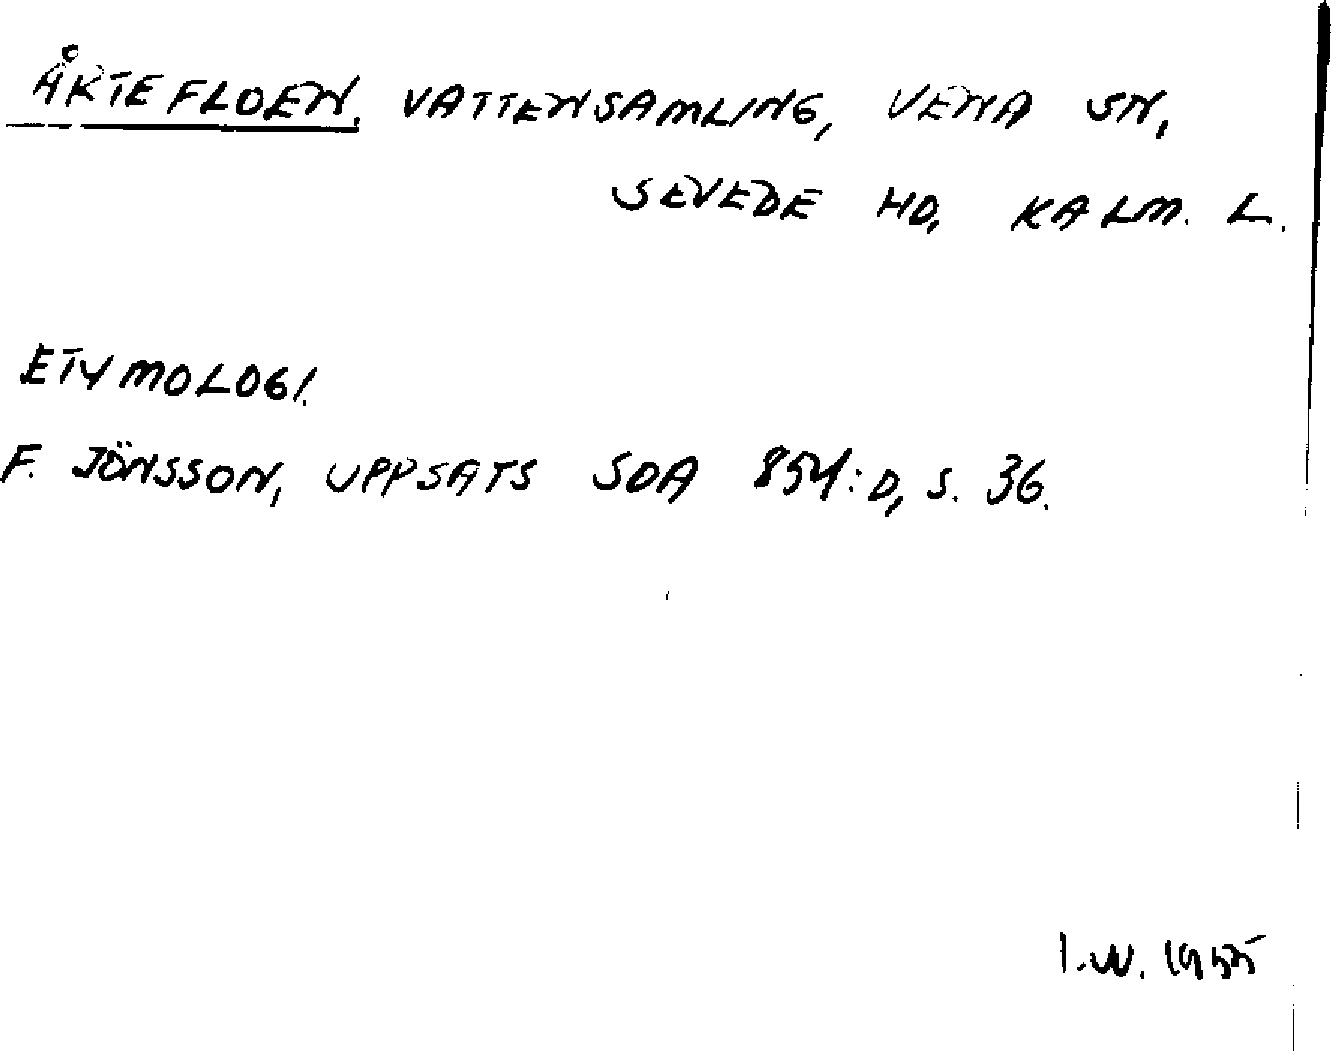 ÅRTEFLOEN, VATTENSAMLING, VENA SN,
SEVEDE HD, KALM. L.
ETYMOLOGI.
F. JÖNSSON, UPPSATS SOA 854:D, S. 36.
I.W. 1955